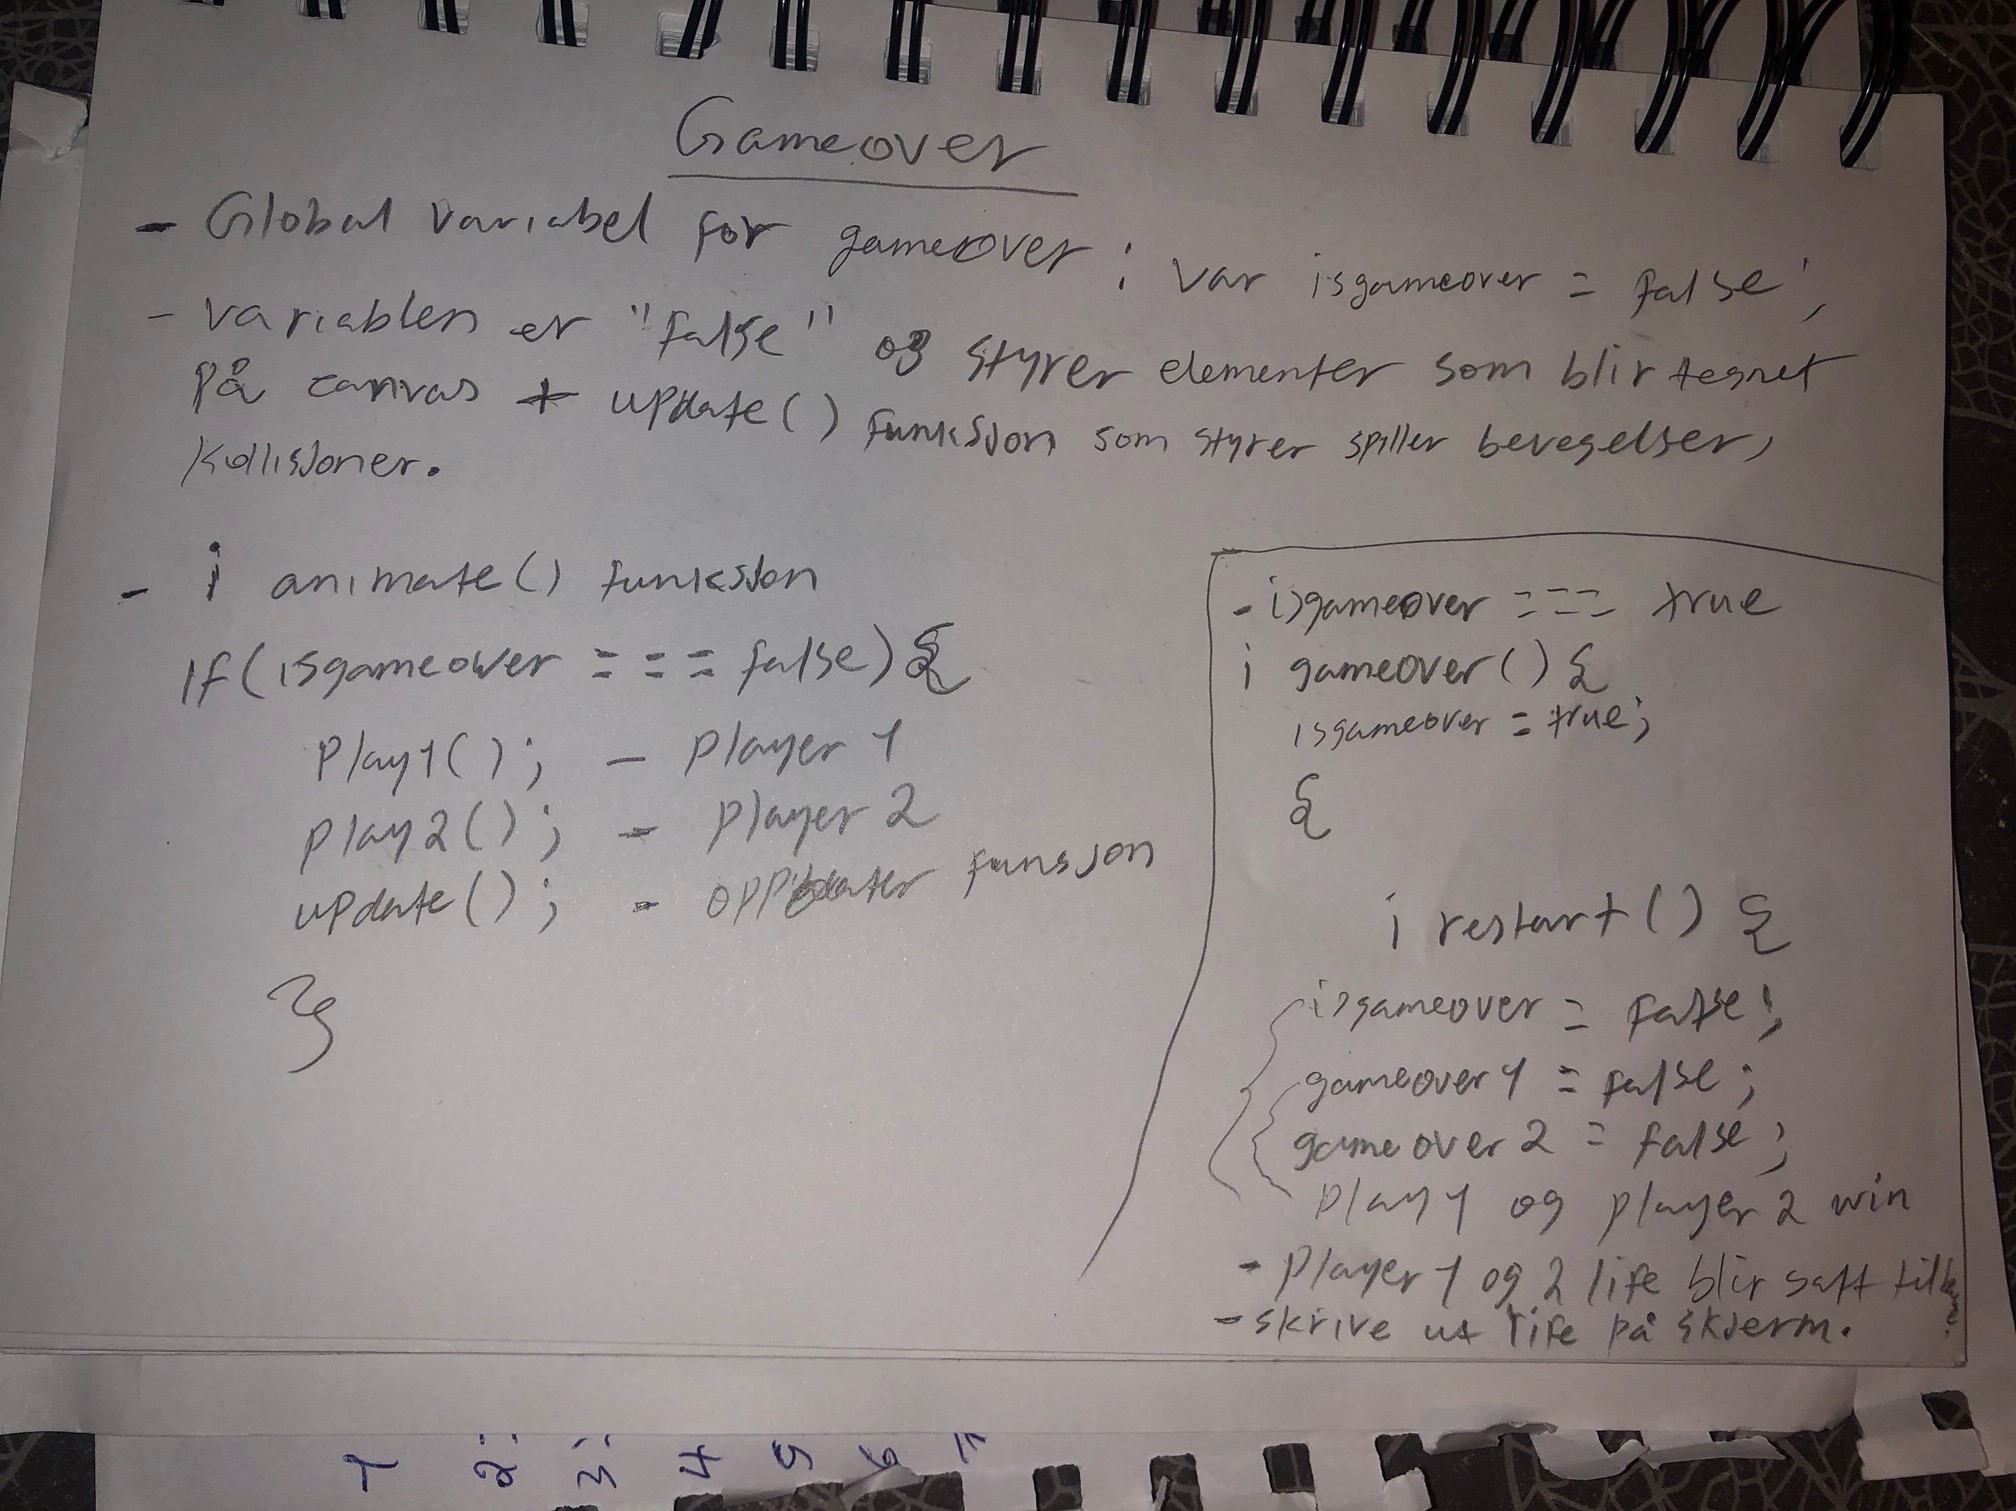 Gameover
- Global variabel for gameover : var isgameover = false;
- variablen er "false" og styrer elementer som blir tegnet
på canvas + update() funksjon som styrer spiller bevegelser,
kollisjoner.
- i animate() funksjon
if(isgameower === false){
play1(); - player 1
play2(); - player 2
update(); - oppdater funsjon
}
- isgameover === true
i gameover(){
isgameover = true;
{
i restart() {
isgameover = false;
gameover1 = false;
gameover2 = false;
play1 og player2 win
- Player 1 og 2 life blir satt
- skrive ut life på skjerm.
1 2: 3: 4 5 6